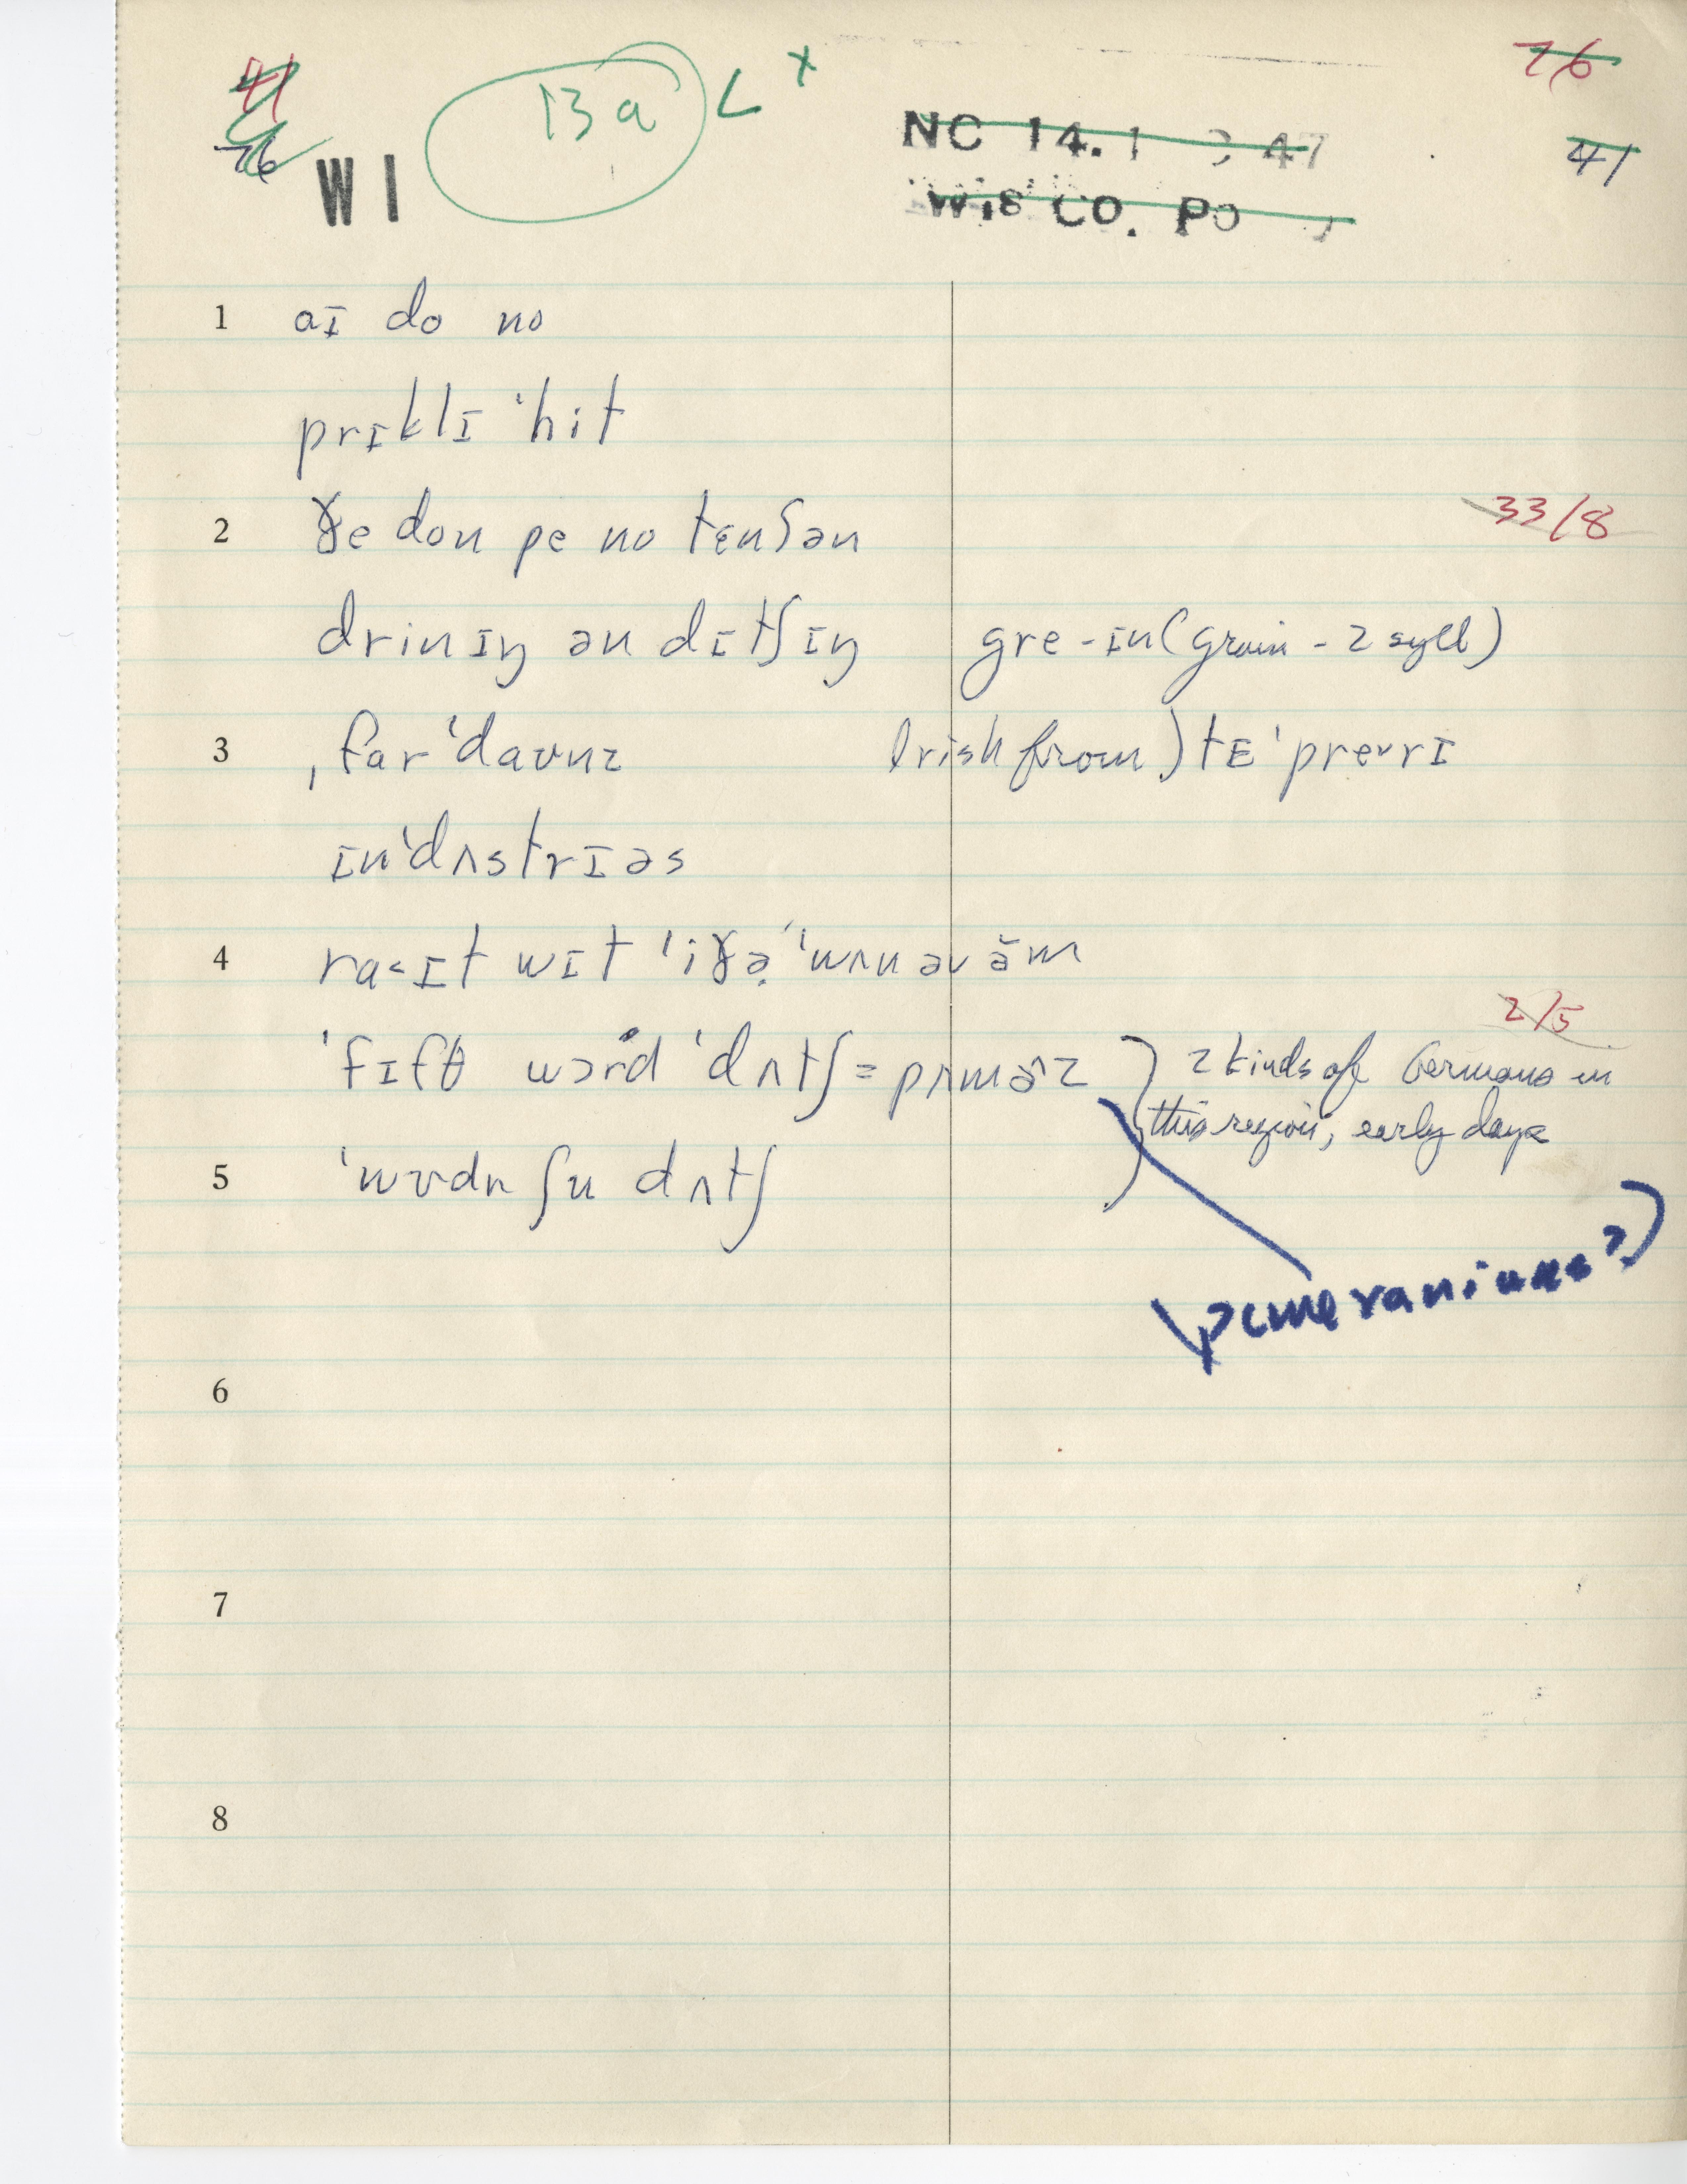 41 76
76 WI 13a L x NC 14.1 47 41
Wis CO. PO
1 aɪ do no
prɪklɪ ˈhit
2 ɣe don pe no tɛnʃən 33/8
drinɪŋ ən dɪtʃɪŋ gre-ɪn (grain - 2 syll)
3 ˌfarˈdaʊnz Irish from) tɛˈpreʳrɪ
ɪnˈdʌstrɪəs
4 ra˂ɪt wɪt ˈiɣə̣ ˈwʌn əv ə̆m
2/5
ˈfɪfθ wərd ˈdʌtʃ = pʌmə˄z } 2 kinds of Germans in
this region, early days
5 ˈwʊdn ʃu dʌtʃ
(pomeranians?)
6
7
8